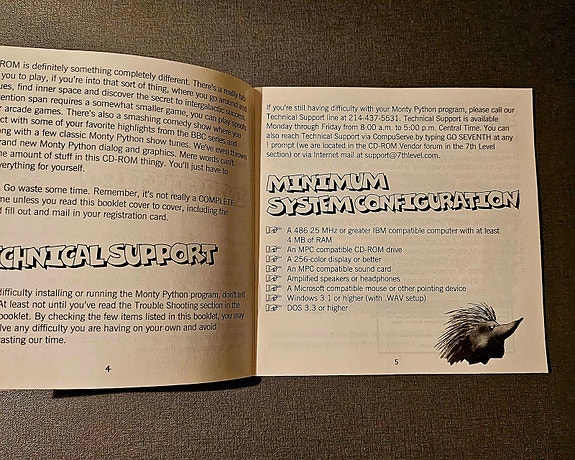 ROM is definitely something completely different. There's a really fab
you to play, if you're into that sort of thing, where you go around and
ues, find inner space and discover the secret to intergalactic success.
ention span requires a somewhat smaller game, you can play spoofs
r arcade games. There's also a smashing comedy show where you
ct with some of your favorite highlights from the BBC series and
ong with a few classic Monty Python show tunes. We've even thrown
rand new Monty Python dialog and graphics. Mere words can't
e amount of stuff in this CD-ROM thingy. You'll just have to
verything for yourself.
Go waste some time. Remember, it's not really a COMPLETE
me unless you read this booklet cover to cover, including the
d fill out and mail in your registration card.
CHNICAL SUPPORT
difficulty installing or running the Monty Python program, don't tell
At least not until you've read the Trouble Shooting section in the
ooklet. By checking the few items listed in this booklet, you may
lve any difficulty you are having on your own and avoid
asting our time.
4
If you're still having difficulty with your Monty Python program, please call our
Technical Support line at 214-437-5531. Technical Support is available
Monday through Friday from 8:00 a.m. to 5:00 p.m. Central Time. You can
also reach Technical Support via CompuServe by typing GO SEVENTH at any
! prompt (we are located in the CD-ROM Vendor forum in the 7th Level
section) or via Internet mail at support@7thlevel.com.
MINIMUM
SYSTEM CONFIGURATION
A 486 25 MHz or greater IBM compatible computer with at least
4 MB of RAM
An MPC compatible CD-ROM drive
A 256-color display or better
An MPC compatible sound card
Amplified speakers or headphones
A Microsoft compatible mouse or other pointing device
Windows 3.1 or higher (with .WAV setup)
DOS 3.3 or higher
5